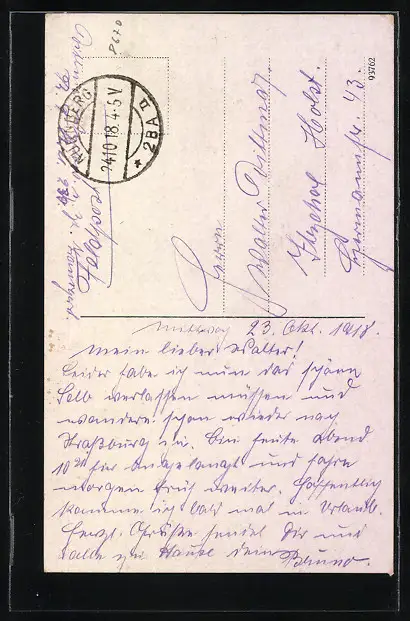 8670
NÜRNBERG
24.10.18.4-5V
* 2BA II
Feldpost
Herrn
Walter Dittmar
Itzehoe Holst.
43.
93762
Mittwoch 23. Okt. 1918.
Mein lieber Walter!
Leider habe ich nun das schöne
Selb verlassen müssen und
wandere schon wieder nach
Straßburg zu. Bin heute Abend
10 hier angelangt und fahre
morgen früh weiter. Hoffentlich
komme ich bald mal in Urlaub.
Herzl. Grüße sendet Dir und
alle zu Hause dein Bruno.